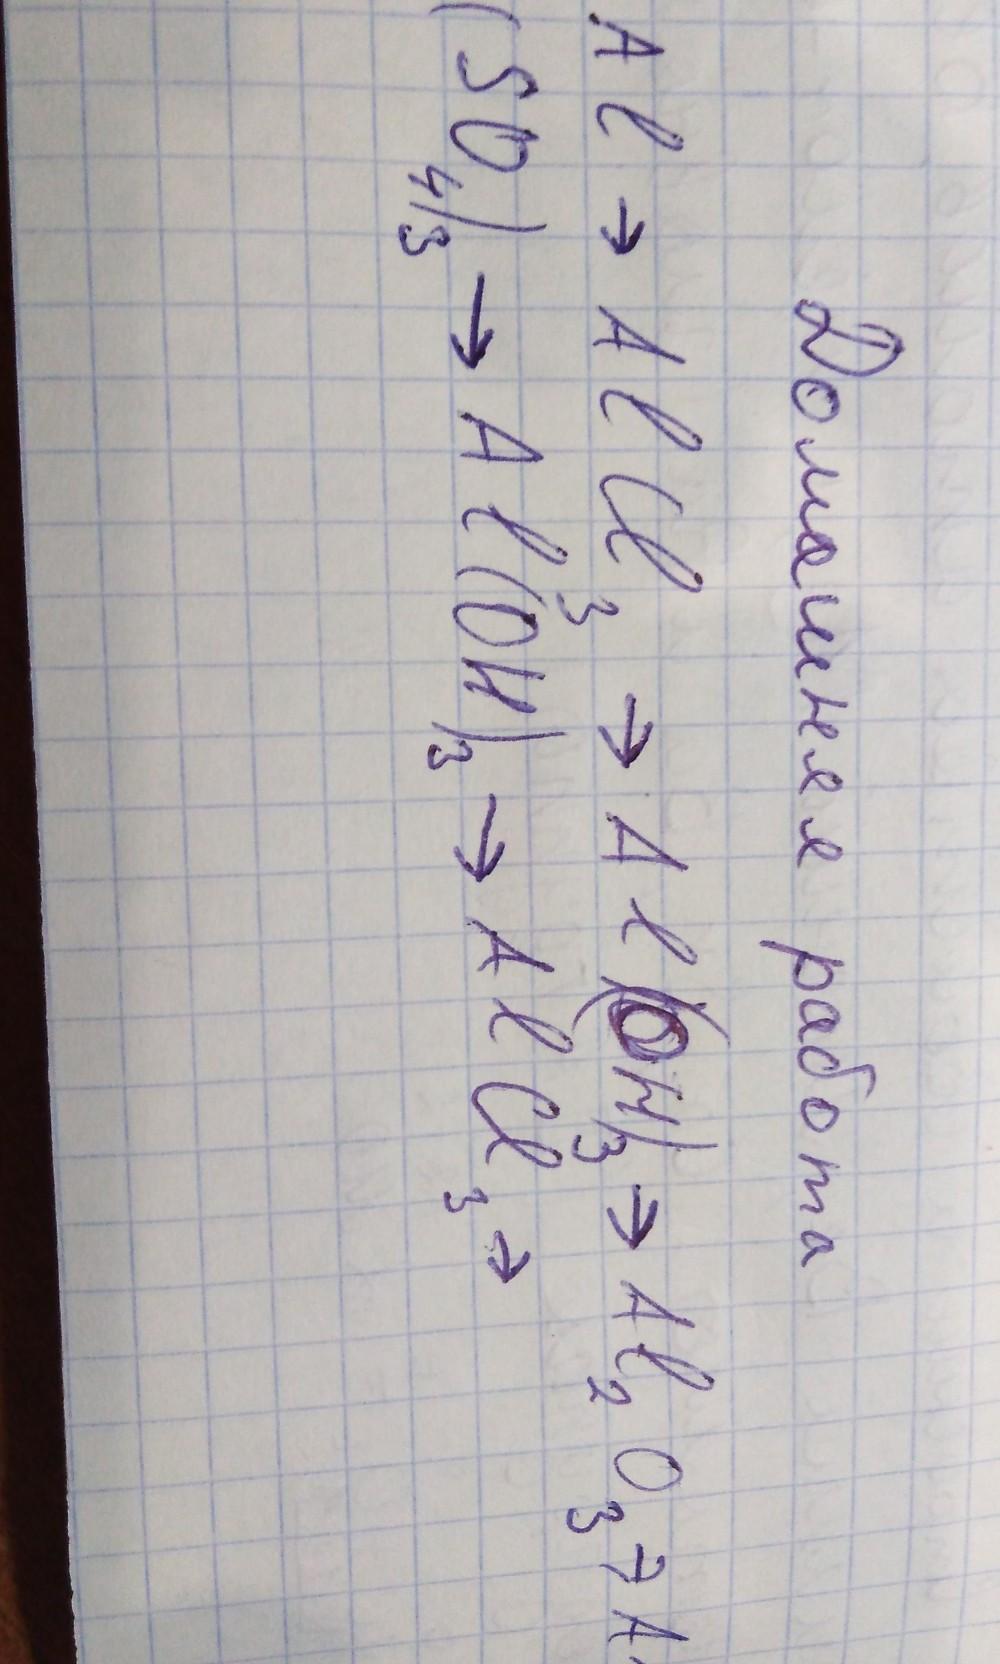 Домашняя работа
Al → AlCl₃ → Al(OH)₃ → Al₂O₃ → A
(SO₄)₃ → Al(OH)₃ → AlCl₃ →